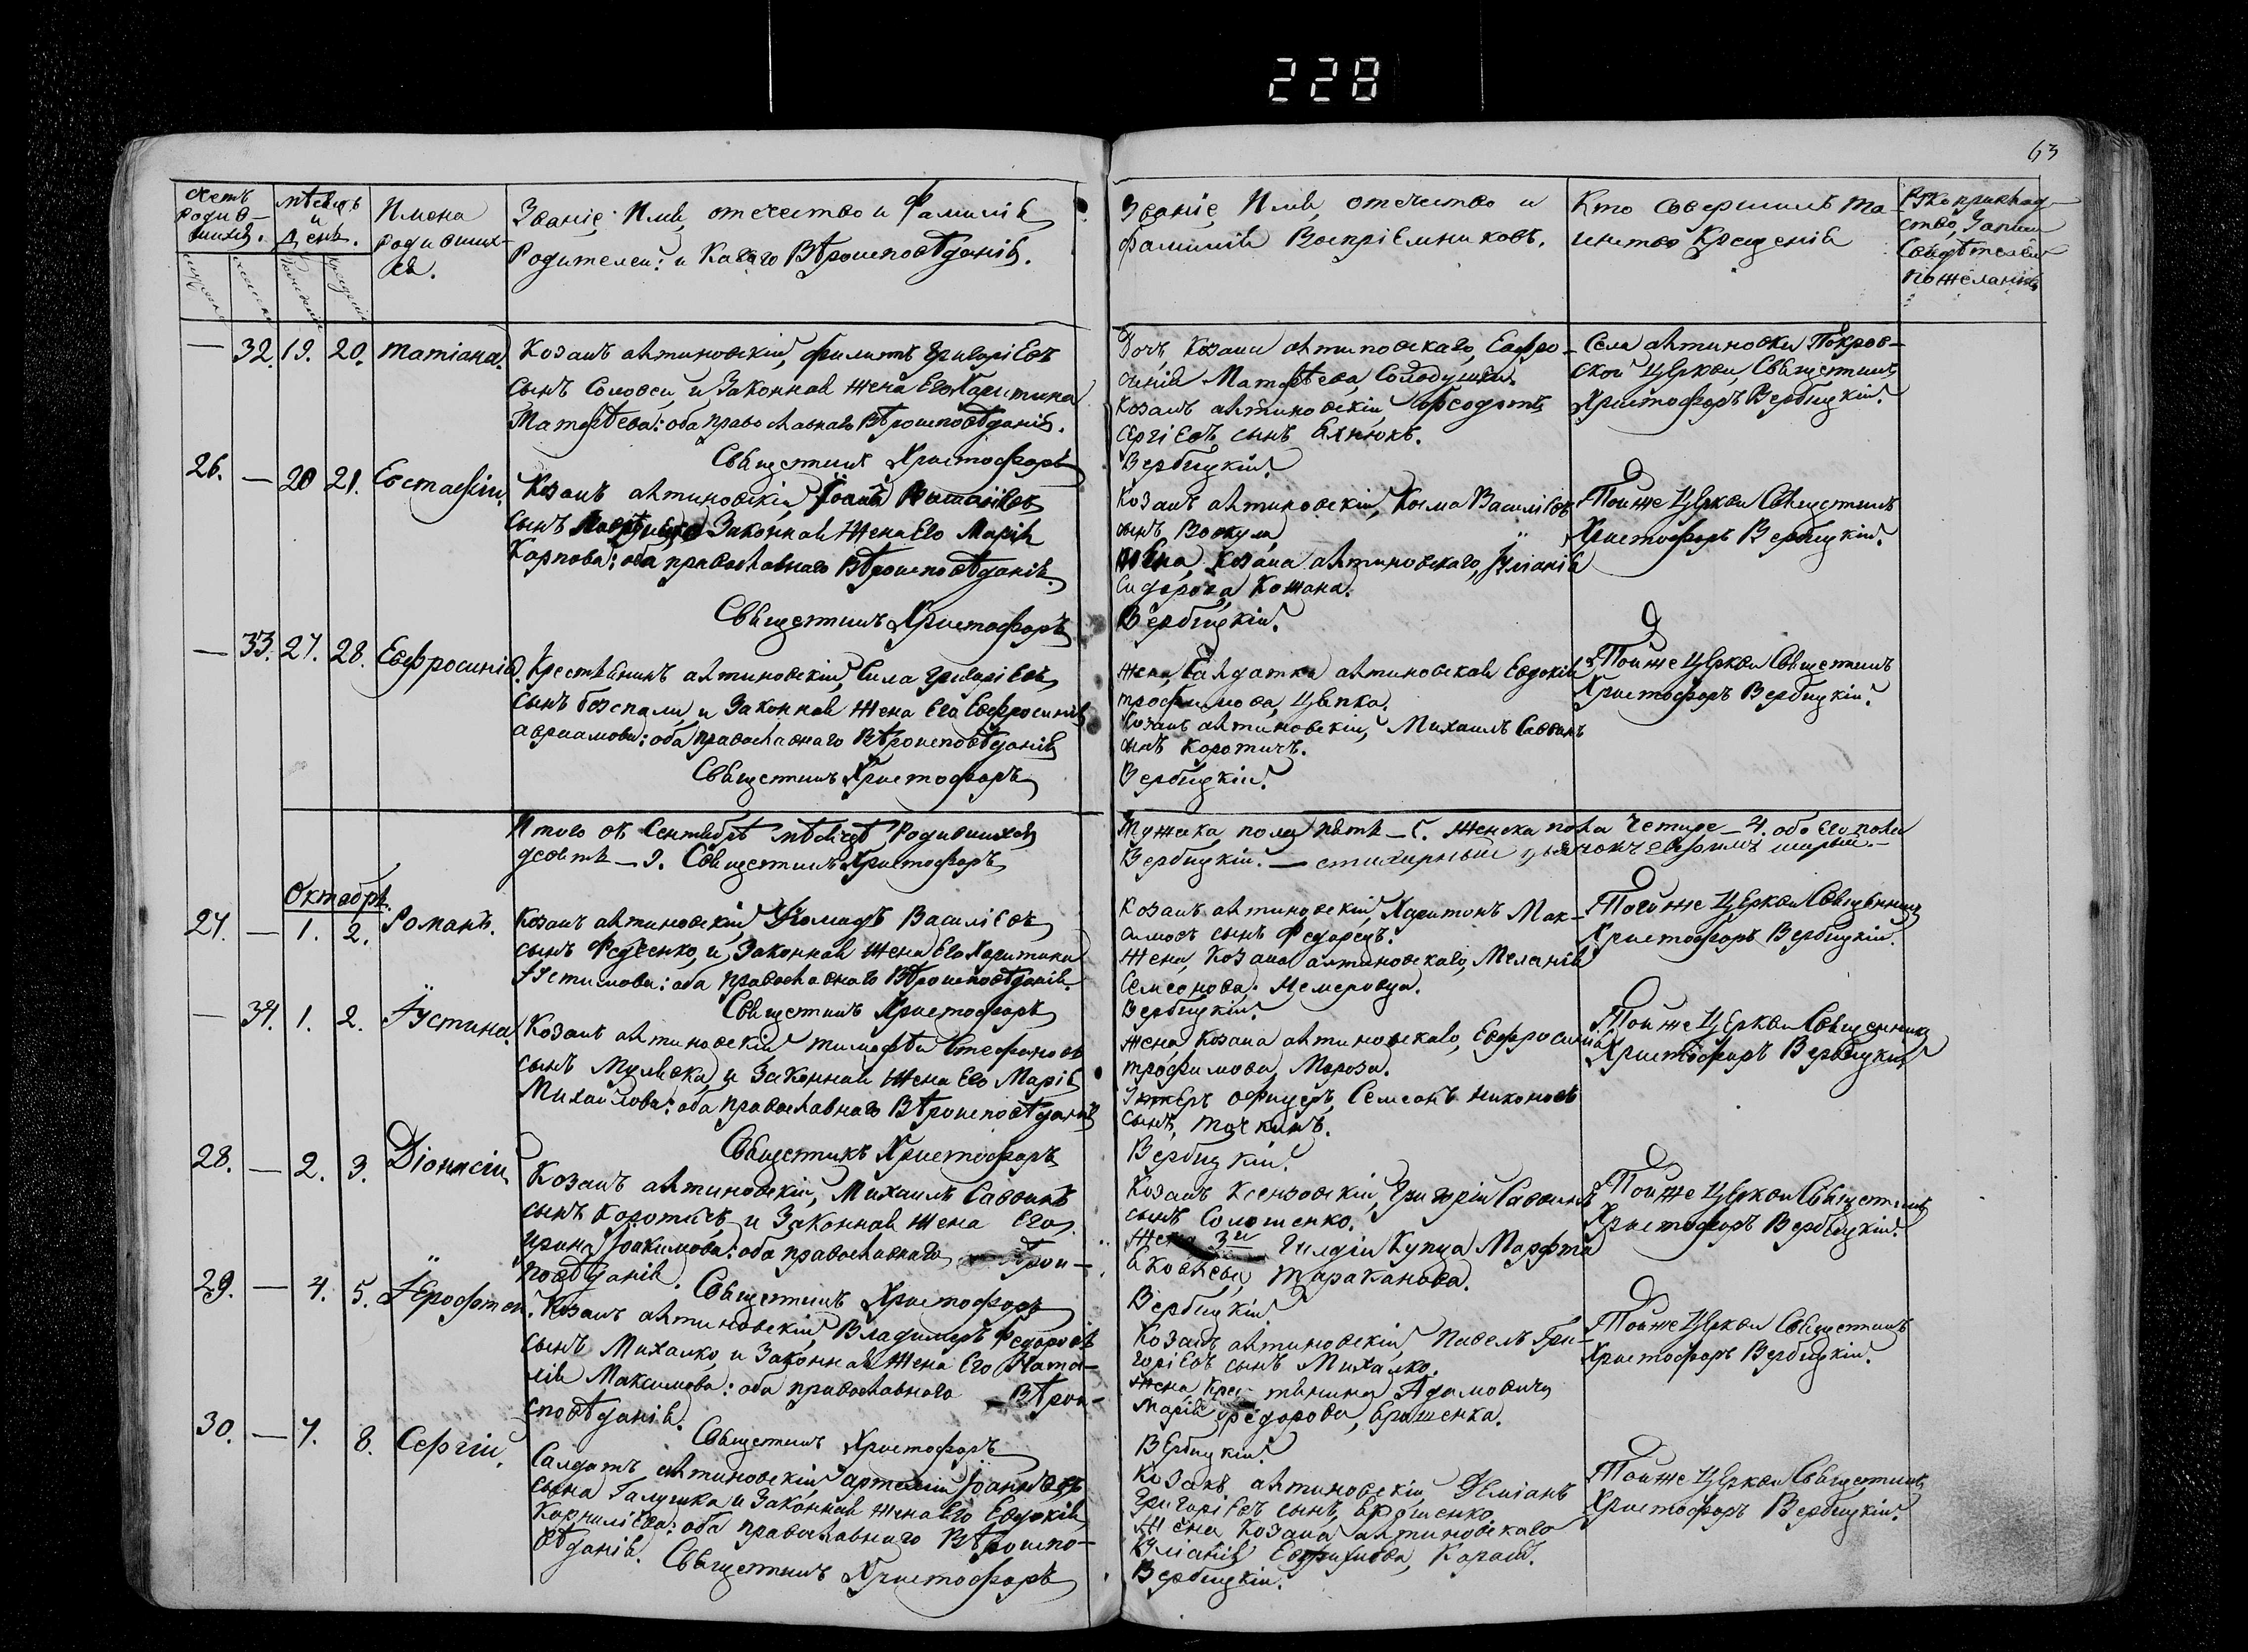 228
63
Счетъ родив-шихся.
мѣсяцъ и день.
Имена родившихся.
Званіе, Имя, отечество и Фамилія
Родителей: и Какого Вѣроисповѣданія.
Званіе, Имя, отечество и
фамилія Воспріемниковъ.
Кто совершилъ Та-
инство Крещенія
Рукоприклад-
ство, Записи
Свидѣтелей
по желанію
— 32. 19. 20. Татіана.
Козакъ алтиновскій, Филипъ Григоріевъ
сынъ и Законная жена Его
Матфѣева: оба православнаго Вѣроисповѣданія.
Священникъ Христофоръ
Дочь Козака алтиновскаго, Евфро-
синія Матфѣева,
Козакъ алтиновскій,
Сергіевъ сынъ
Вербицкій.
Села алтиновки Покров-
ской Церкви, Священникъ
Христофоръ Вербицкій.
26. — 20 21. Евстафій.
Козакъ алтиновскій Іоаннъ
сынъ Законная жена Его Марія
Карпова: оба православнаго Вѣроисповѣданія.
Священникъ Христофоръ
Козакъ алтиновскій, Косма Василіевъ
сынъ Вовкула,
жена Козака алтиновскаго, Уліанія
Сидорова Кожана.
Вербицкій.
Тойже Церкви Священникъ
Христофоръ Вербицкій.
— 33. 27. 28. Евфросинія.
Крестьянинъ алтиновскій, Сила Григоріевъ
сынъ и Законная жена Его Евфросинія
авраамова: оба православнаго Вѣроисповѣданія
Священникъ Христофоръ
Жена Салдатка алтиновская Евдокія
трофимова,
Козакъ алтиновскій, Михаилъ Саввинъ
сынъ Коротичъ.
Вербицкій.
Тойже Церкви Священникъ
Христофоръ Вербицкій.
Итого въ Сентябрѣ мѣсяцѣ Родившихся
девять — 9. Священникъ Христофоръ
Мужска пола пять — 5. Женска пола четыре — 4. обоего пола
Вербицкій. — стихирный
Октябрь.
27. — 1. 2. Романъ.
Козакъ алтиновскій Василіевъ
сынъ Федченко, и Законная жена Его Харитина
Іустинова: оба православнаго Вѣроисповѣданія.
Священникъ Христофоръ
Козакъ алтиновскій, Харитонъ Мак-
симовъ сынъ Федорецъ.
Жена Козака алтиновскаго, Меланія
Семеонова, Немеровца.
Вербицкій.
Тойже Церкви Священникъ
Христофоръ Вербицкій.
— 34. 1. 2. Іустина.
Козакъ алтиновскій тимофѣй Стефановъ
сынъ и Законная жена Его Марія
Михайлова: оба православнаго Вѣроисповѣданія
Священникъ Христофоръ
Жена Козака алтиновскаго, Евфросинія
трофимова, Мороза.
Унтеръ офицеръ, Семеонъ Никоновъ
сынъ, точкинъ.
Вербицкій.
Тойже Церкви Священникъ
Христофоръ Вербицкій
28. — 2. 3. Діонисій
Козакъ алтиновскій, Михаилъ Саввинъ
сынъ Коротичъ, и Законная жена Его
ирина Іоакимова: оба православнаго Вѣрои-
повѣданія. Священникъ Христофоръ
Козакъ Ксензовскій, Григорій Саввинъ
сынъ Солошенко.
Жена 3й Гилдіи Купца Марфта
Тараканова.
Вербицкій.
Тойже Церкви Священникъ
Христофоръ Вербицкій.
29. — 4. 5. Іерофтей.
Козакъ алтиновскій, Владимеръ Федоровъ
сынъ Михалко, и Законная жена Его Ната-
лія Максимова: оба православнаго Вѣрои-
сповѣданія.
Священникъ Христофоръ
Козакъ алтиновскій, Павелъ Гри-
горіевъ сынъ Михалко.
Жена Крестьянина Адамовича
Марія Федорова, Ерашенка.
Вербицкій.
Тойже Церкви Священникъ
Христофоръ Вербицкій.
30. — 7. 8. Сергій.
Салдатъ алтиновскій, артемій Іоанновъ
сына Галушка и Законная жена Его Евдокія
Корниліева: оба православнаго Вѣроиспо-
вѣданія. Священникъ Христофоръ
Козакъ алтиновскій, Деміанъ
Григоріевъ сынъ, Ерошенко.
Жена Козака алтиновскаго
Уліанія
Вербицкій.
Тойже Церкви Священникъ
Христофоръ Вербицкій.